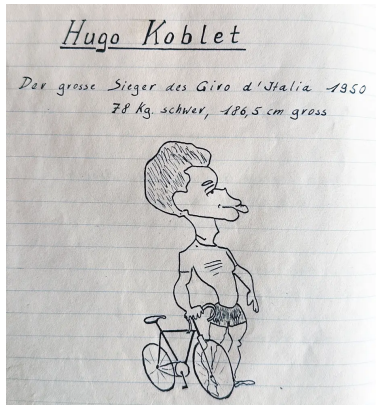 Hugo Koblet
Der grosse Sieger des Giro d'Italia 1950
78 Kg. schwer, 186,5 cm gross